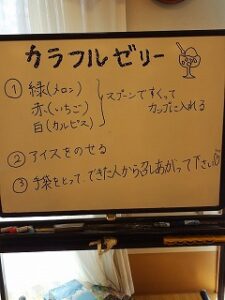 カラフルゼリー
① 緑(メロン)
赤(いちご)
白(カルピス)
スプーンですくって
カップに入れる
② アイスをのせる
③ 手袋をとって、できた人から召しあがって下さい